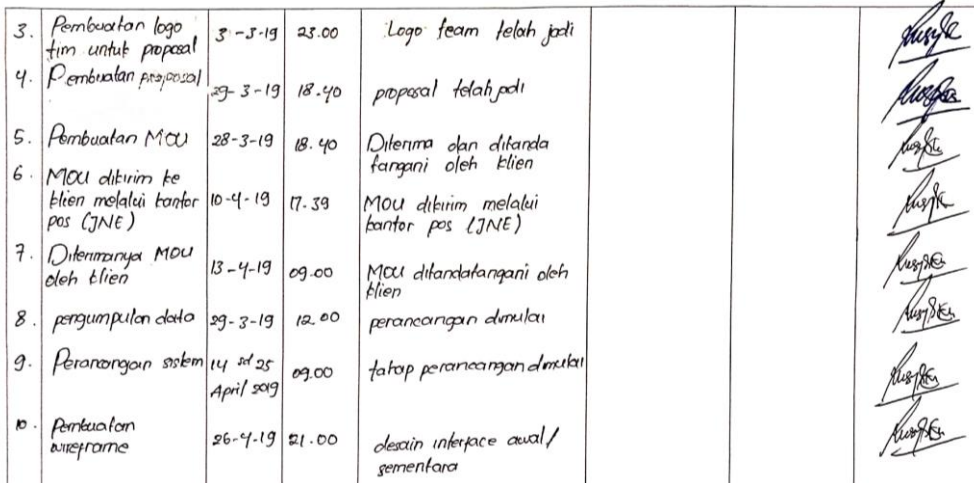 3. Pembuatan logo tim untuk proposal 3-3-19 23.00 Logo team telah jadi
4. Pembuatan proposal 29-3-19 18.40 proposal telah jadi
5. Pembuatan MOU 28-3-19 18.40 Diterima dan ditanda tangani oleh klien
6. MOU dikirim ke klien melalui kantor pos (JNE) 10-4-19 17.39 MOU dikirim melalui kantor pos (JNE)
7. Diterimanya MOU oleh klien 13-4-19 09.00 MOU ditandatangani oleh klien
8. pengumpulan data 29-3-19 12.00 perancangan dimulai
9. Perancangan sistem 14 sd 25 April 2019 09.00 tahap perancangan dimulai
10. Pembuatan wireframe 26-4-19 21.00 desain interface awal/ sementara